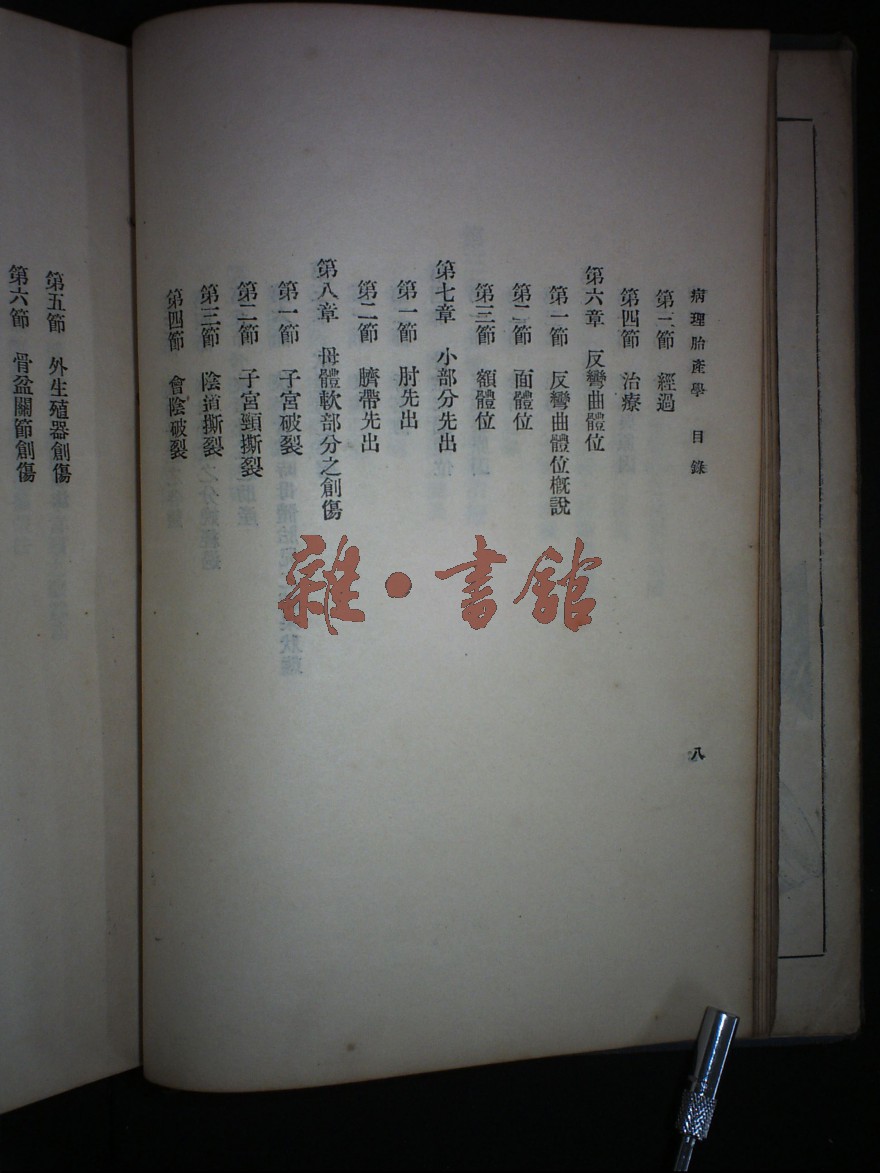 病理胎產學 目錄
第三節 經過
第四節 治療
第六章 反彎曲體位
第一節 反彎曲體位概說
第二節 面體位
第三節 額體位
第七章 小部分先出
第一節 肘先出
第二節 臍帶先出
第八章 母體軟部分之創傷
第一節 子宮破裂
第二節 子宮頸撕裂
第三節 陰道撕裂
第四節 會陰破裂
八
第五節 外生殖器創傷
第六節 骨盆關節創傷
雜·書館